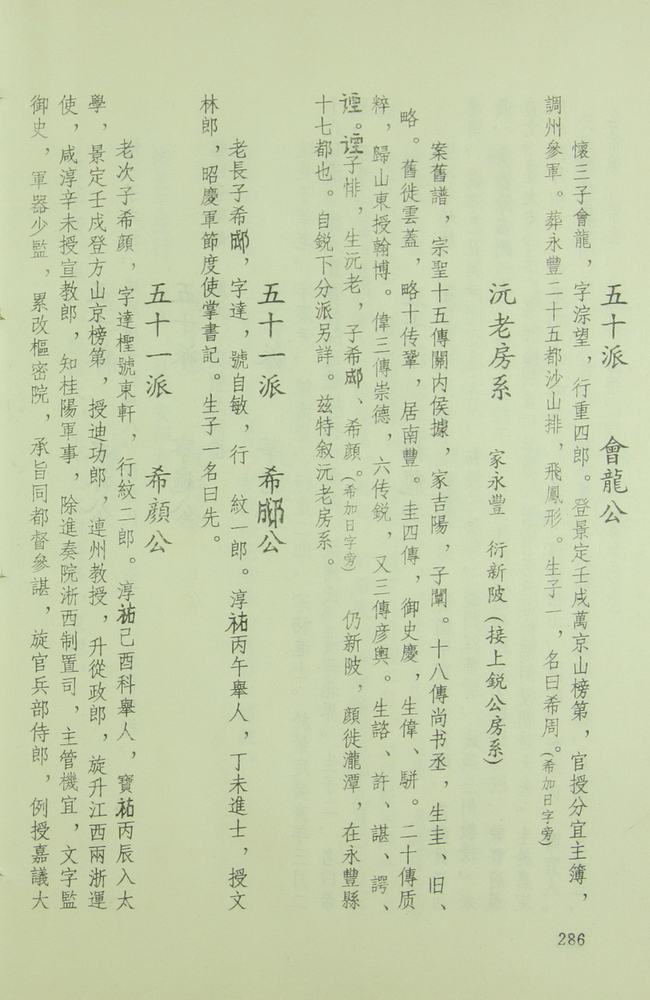 五十派　會龍公
懷三子會龍，字淙望，行重四郎。登景定壬戌萬京山榜第，官授分宜主簿，
調州參軍。葬永豐二十五都沙山排，飛鳳形。生子一，名曰希周。(希加日字旁)
沅老房系　家永豐　衍新陂(接上鋭公房系)
案舊譜，宗聖十五傳關内侯據，家吉陽，子闡。十八傳尚书丞，生圭、旧、
略。舊徙雲蓋，略十传鞏，居南豐。圭四傳，御史慶，生偉、駢。二十傳质
粹，歸山東授翰博。偉三傳崇德，六传鋭，又三傳彦輿。生諮、許、諶、諤、
諲。諲子悱，生沅老，子希邴、希顔。(希加日字旁)　仍新陂，顔徙瀧潭，在永豐縣
十七都也。自鋭下分派另詳。兹特叙沅老房系。
五十一派　希邴公
老長子希邴，字達，號自敏，行　紋一郎。淳祐丙午舉人，丁未進士，授文
林郎，昭慶軍節度使掌書記。生子一名曰先。
五十一派　希顔公
老次子希顔，字達檉號東軒，行紋二郎。淳祐己酉科舉人，寶祐丙辰入太
學，景定壬戌登方山京榜第，授迪功郎，連州教授，升從政郎，旋升江西兩浙運
使，咸淳辛未授宣教郎，知桂陽軍事，除進奏院浙西制置司，主管機宜，文字監
御史，軍器少監，累改樞密院，承旨同都督參諶，旋官兵部侍郎，例授嘉議大
286